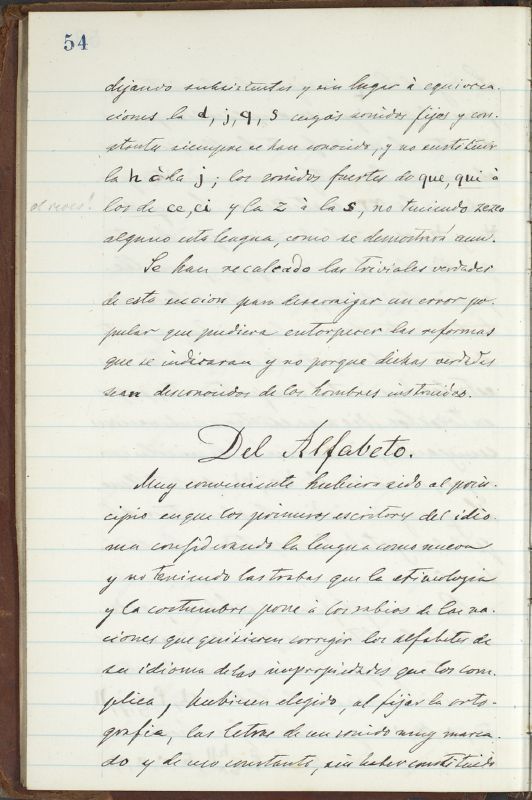 54
dejando subsistentes y sin lugar à equivoca-
ciones la d, j, q, s cuyos sonidos fijos y con-
stantes siempre se han conocido, y no sustituir
la h à la j; los sonidos fuertes de que, qui à
los de ce, ci y la z à la s, no teniendo zezeo
alguno esta lengua, como se demostrará aun.
Se han recalcado las triviales verdades
de esta seccion para desarraigar un error po-
pular que pudiera entorpecer las reformas
que se indicaran y no porque dichas verdades
sean desconocidas de los hombres instruidos.
Del Alfabeto.
Muy conveniente hubiera sido al prin-
cipio en que los primeros escritores del idio-
ma considerando la lengua como nueva
y no teniendo las trabas que la etimologia
y la costumbre pone à los sabios de las na-
ciones que quisieren corregir los alfabetos de
su idioma de las impropiedades que los com-
plica, hubiesen elegido, al fijar la orto-
grafia, las letras de un sonido muy marca-
do y de uso constante, sin haber constituido